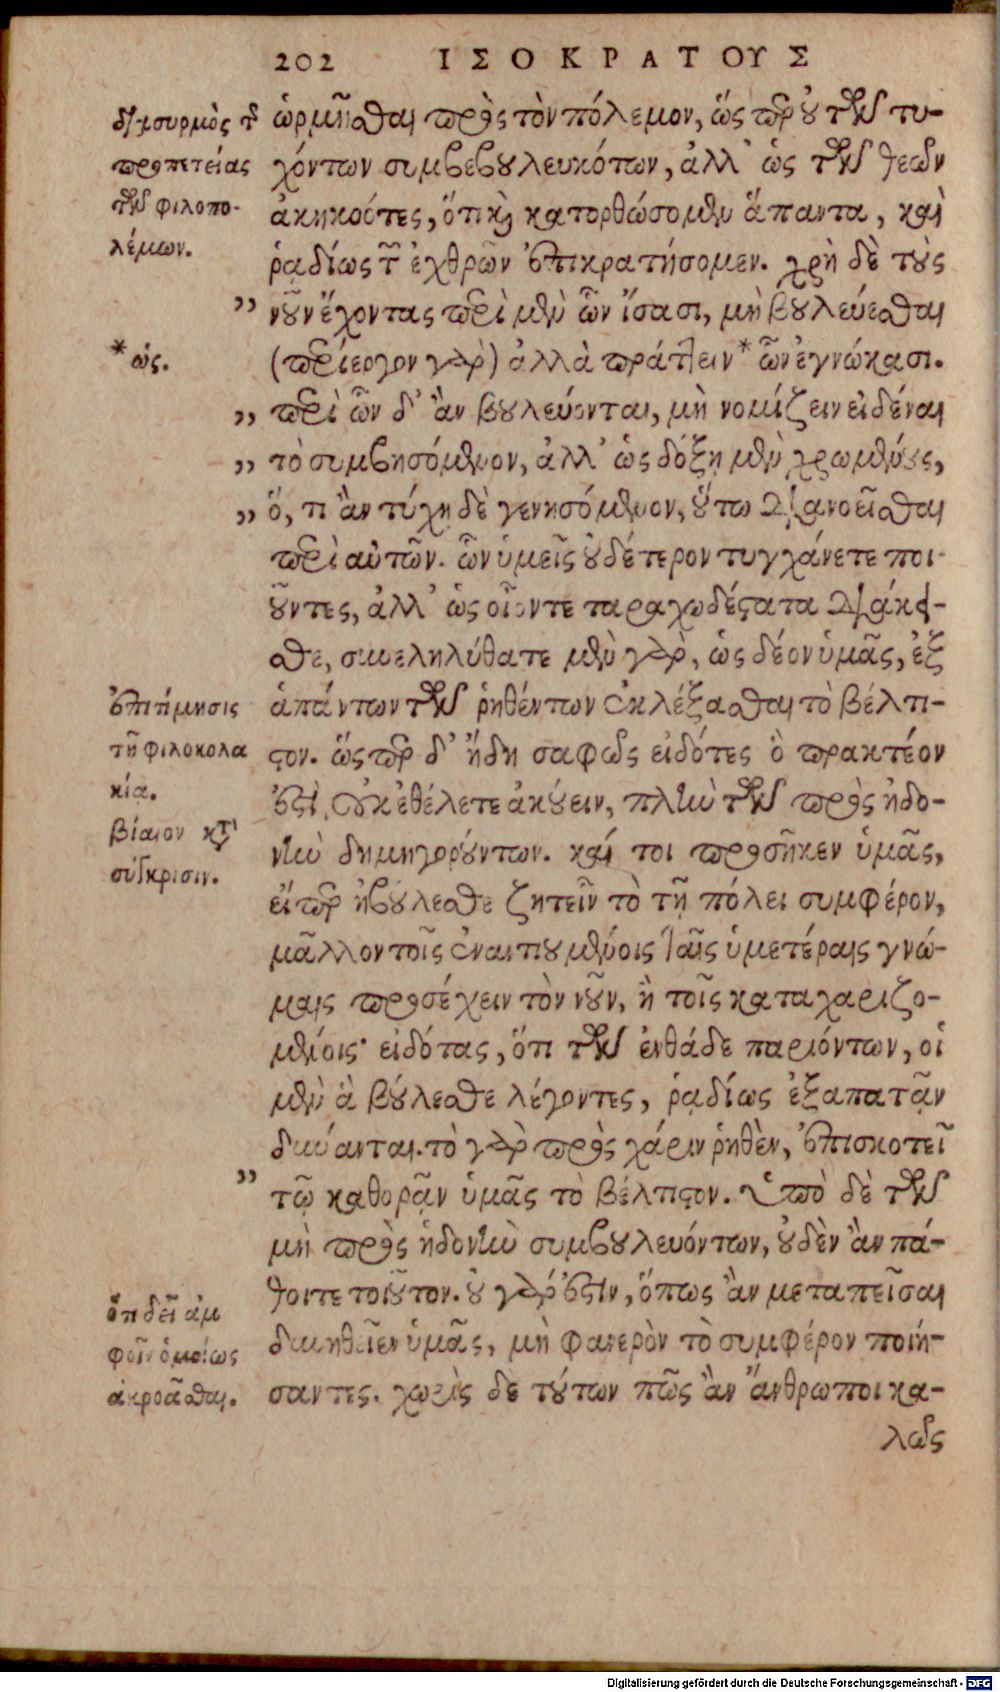 202 ΙΣΟΚΡΑΤΟΥΣ
διασυρμὸς τ͂
προπετείας
τῶν φιλοπο-
λέμων.
*ὡς.
ἐπιτίμησις
τῇ φιλοκολα
κίᾳ.
βίαιον κτ᾽
σύγκρισιν.
ὅτι δεῖ ἀμ
φοῖν ὁμοίως
ἀκροᾶσθαι.
ὡρμῆσθαι πρὸς τὸν πόλεμον, ὥσπερ οὐ τῶν τυ-
χόντων συμβεβουλευκότων, ἀλλ᾽ ὡς τῶν θεῶν
ἀκηκοότες, ὅτι καὶ κατορθώσομεν ἅπαντα, καὶ
ῥᾳδίως τ͂ ἐχθρῶν ἐπικρατήσομεν. χρὴ δὲ τοὺς
” νοῦν ἔχοντας περὶ μὲν ὧν ἴσασι, μὴ βουλεύεσθαι
(περίεργον γὰρ) ἀλλὰ πράττειν * ὧν ἐγνώκασι.
” περὶ ὧν δ᾽ ἂν βουλεύονται, μὴ νομίζειν εἰδέναι
” τὸ συμβησόμενον, ἀλλ᾽ ὡς δόξῃ μὲν χρωμένους,
” ὅ, τι ἂν τύχῃ δὲ γενησόμενον, οὕτω διανοεῖσθαι
περὶ αὐτῶν. ὧν ὑμεῖς οὐδέτερον τυγχάνετε ποι-
οῦντες, ἀλλ᾽ ὡς οἷόντε ταραχωδέστατα διάκει-
σθε, συνεληλύθατε μὲν γὰρ, ὡς δέον ὑμᾶς, ἐξ
ἁπάντων τῶν ῥηθέντων ἐκλέξασθαι τὸ βέλτι-
στον. ὥσπερ δ᾽ ἤδη σαφῶς εἰδότες ὃ πρακτέον
ἐστὶ, οὐκ ἐθέλετε ἀκούειν, πλὴν τῶν πρὸς ἡδο-
νὴν δημηγορούντων. καί τοι προσῆκεν ὑμᾶς,
εἴπερ ἠβούλεσθε ζητεῖν τὸ τῇ πόλει συμφέρον,
μᾶλλον τοῖς ἐναντιουμένοις ταῖς ὑμετέραις γνώ-
μαις προσέχειν τὸν νοῦν, ἢ τοῖς καταχαριζο-
μένοις· εἰδότας, ὅτι τῶν ἐνθάδε παριόντων, οἱ
μὲν ἃ βούλεσθε λέγοντες, ῥᾳδίως ἐξαπατᾷν
δύνανται. τὸ γὰρ πρὸς χάριν ῥηθὲν, ἐπισκοτεῖ
” τῷ καθορᾷν ὑμᾶς τὸ βέλτιστον. ὑπὸ δὲ τῶν
μὴ πρὸς ἡδονὴν συμβουλευόντων, οὐδὲν ἂν πά-
θοιτε τοιοῦτον. οὐ γάρ ἐστιν, ὅπως ἂν μεταπεῖσαι
δυνηθεῖεν ὑμᾶς, μὴ φανερὸν τὸ συμφέρον ποιή-
σαντες. χωρὶς δὲ τούτων πῶς ἂν ἄνθρωποι κα-
λῶς
Digitalisierung gefördert durch die Deutsche Forschungsgemeinschaft - DFG